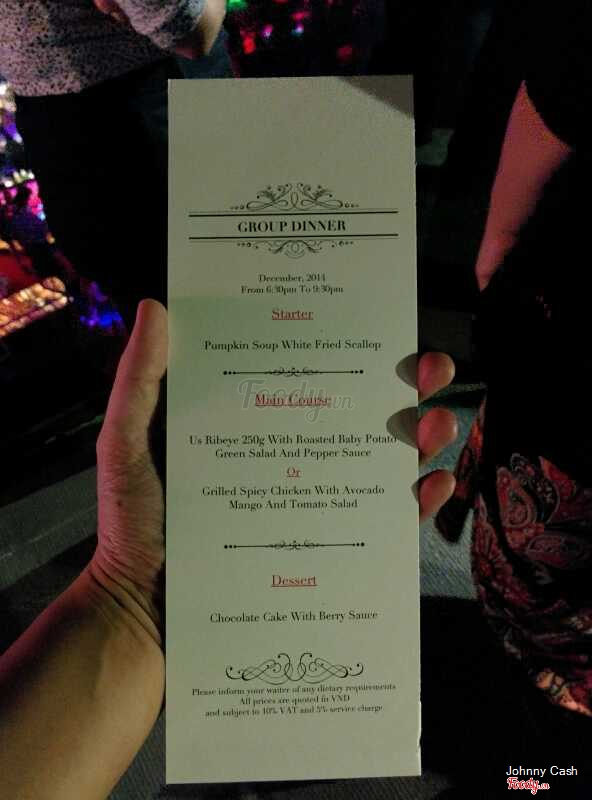 GROUP DINNER
December, 2014
From 6:30pm To 9:30pm
Starter
Pumpkin Soup White Fried Scallop
Main Course
Foody.vn
Us Ribeye 250g With Roasted Baby Potato
Green Salad And Pepper Sauce
Or
Grilled Spicy Chicken With Avocado
Mango And Tomato Salad
Dessert
Chocolate Cake With Berry Sauce
Please inform your waiter of any dietary requirements
All prices are quoted in VND
and subject to 10% VAT and 5% service charge
Johnny Cash
Foody.vn